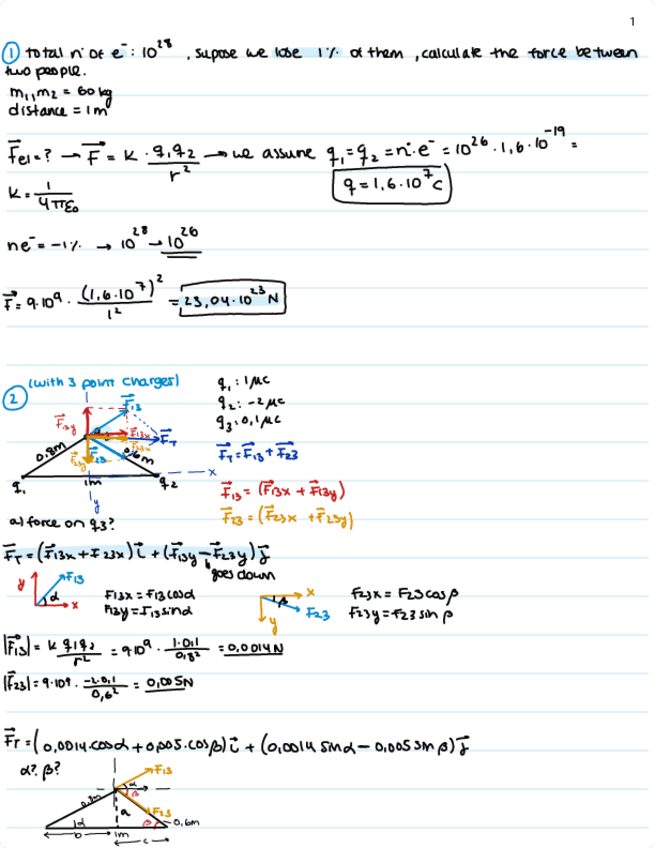 1
① total nº of e⁻: 10²⁸, supose we lose 1% of them, calculate the force between
two people.
m₁, m₂ = 60 kg
distance = 1m
F⃗el = ? → F⃗ = K · q₁q₂ / r² → we assume q₁ = q₂ = nº·e⁻ = 10²⁶ · 1,6 · 10⁻¹⁹ =
q = 1,6 · 10⁷ C
K = 1 / 4πε₀
ne⁻ = -1% → 10²⁸ → 10²⁶
F⃗ = 9·10⁹ · (1,6·10⁷)² / 1² = 23,04 · 10²³ N
② (with 3 point charges)
q₁: 1 μC
q₂: -2 μC
q₃: 0,1 μC
F⃗T = F⃗13 + F⃗23
F⃗13 = (F⃗13x + F⃗13y)
F⃗23 = (F⃗23x + F⃗23y)
F⃗13
F⃗13y
α
F⃗13x
F⃗23x
F⃗T
F⃗23y
F⃗23
0,8m
0,6m
x
q₁
1m
q₂
y
a) force on q₃?
F⃗T = (F⃗13x + F⃗23x) i⃗ + (F⃗13y - F⃗23y) j⃗
goes down
y
F⃗13
α
x
F13x = F13 cosα
F13y = F13 sinα
x
β
F23
y
F23x = F23 cosβ
F23y = F23 sin β
|F⃗13| = K q₁q₂ / r² = 9·10⁹ · 1·0,1 / 0,8² = 0,0014N
|F⃗23| = 9·10⁹ · -2·0,1 / 0,6² = 0,005N
F⃗T = (0,0014·cosα + 0,005·cosβ) i⃗ + (0,0014 sinα - 0,005 sin β) j⃗
α? β?
F13
α
β
0,8m
a
F23
α
β
0,6m
b
1m
c